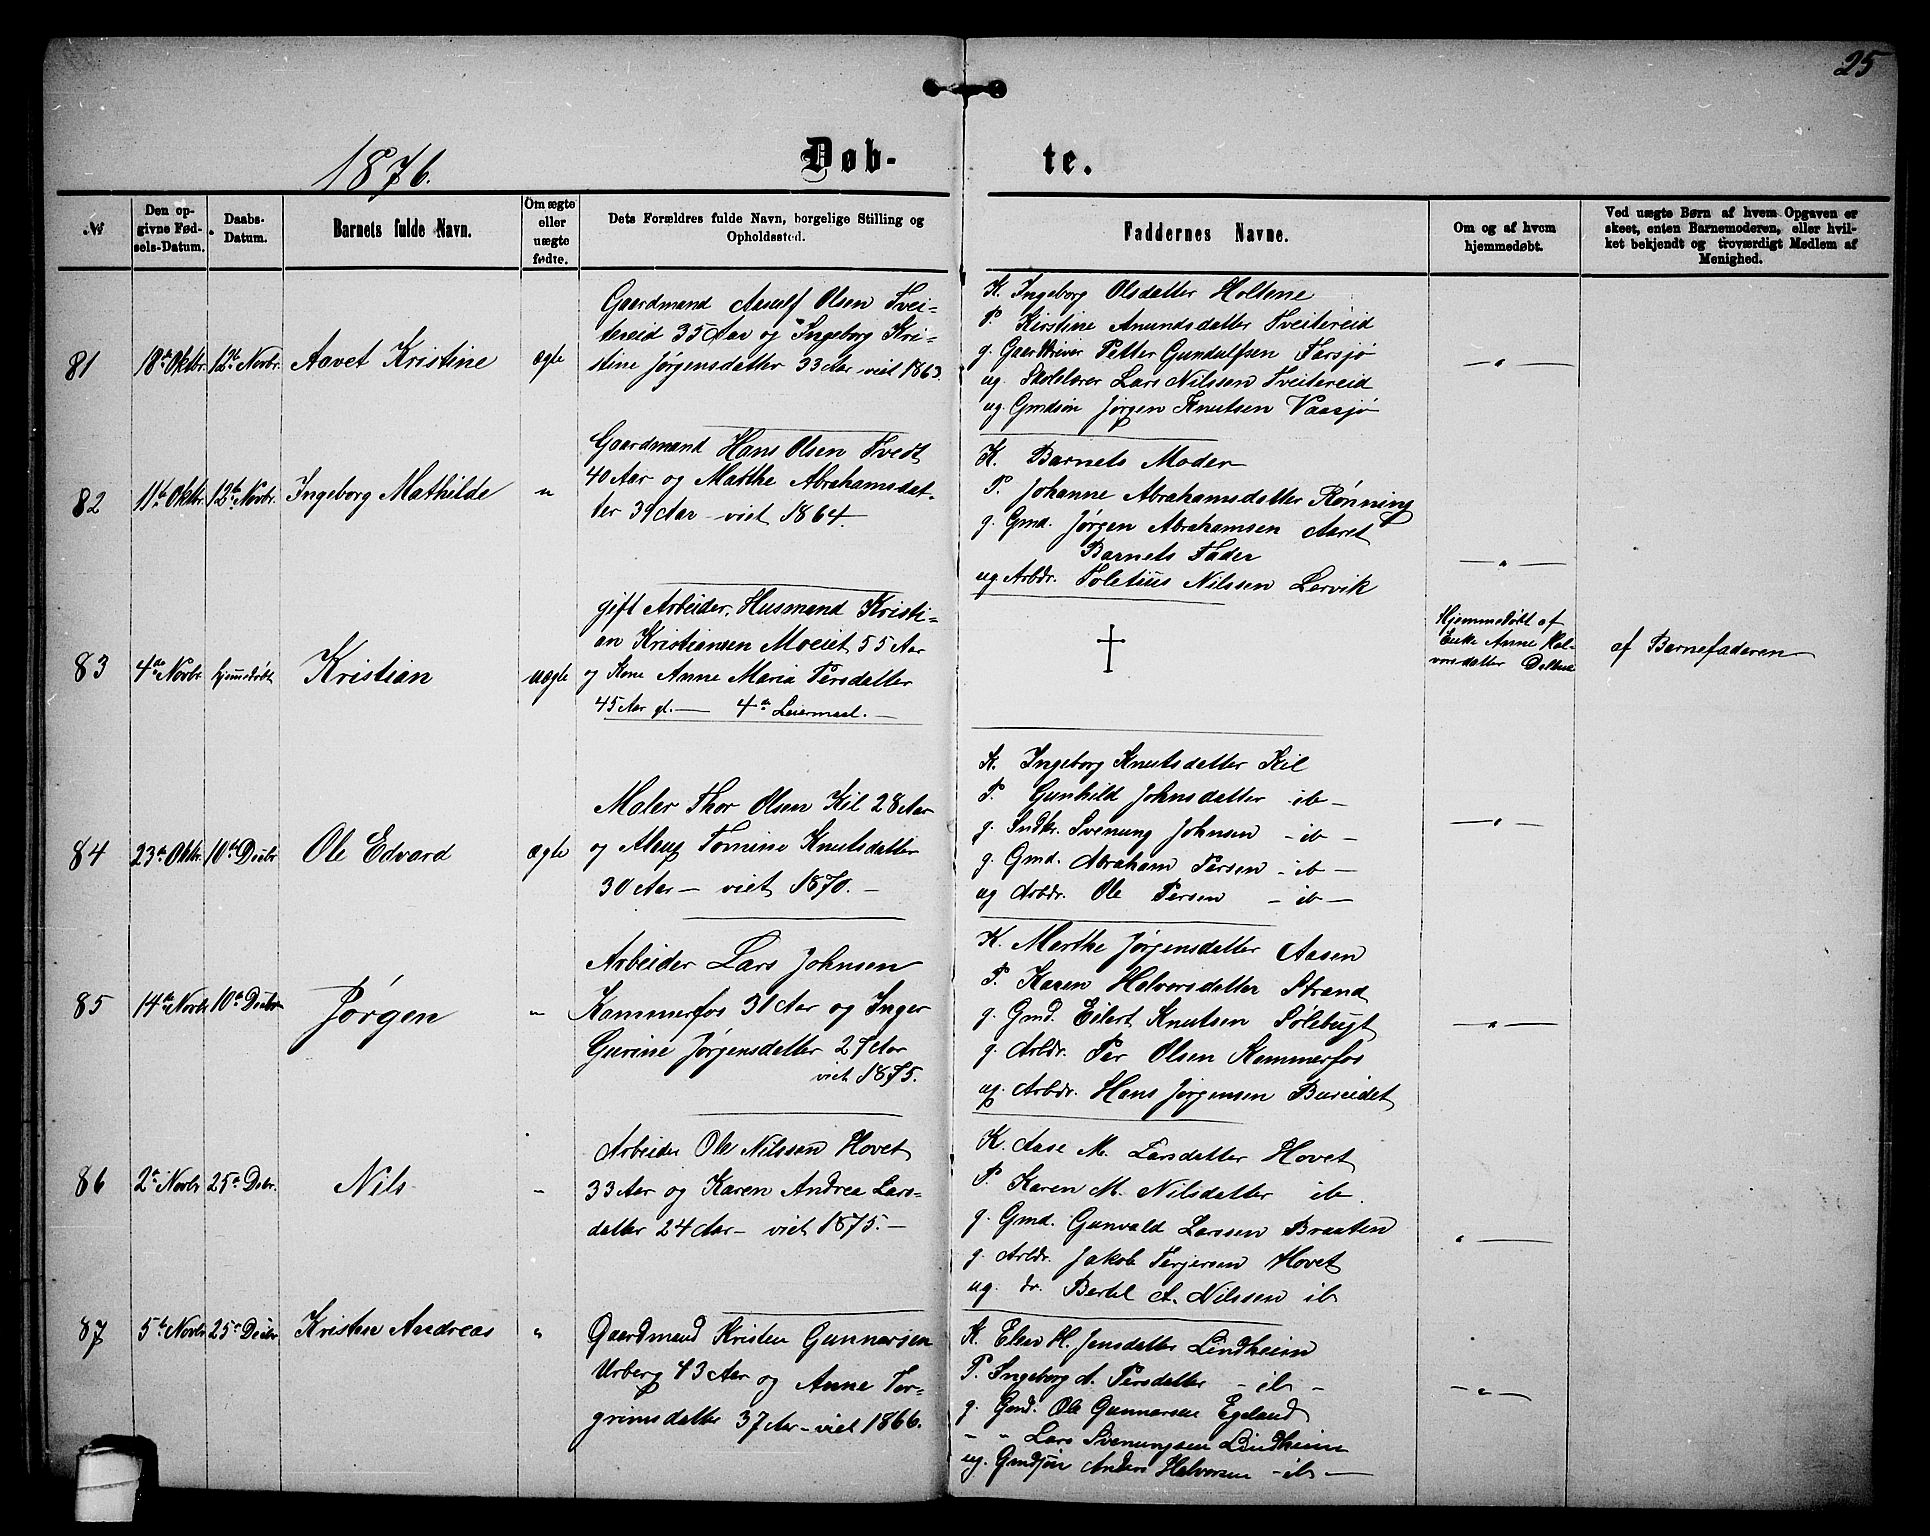 25
1876.
Døb-
te.
№
Den op-
givne Fød-
sels-Datum.
Daabs-
Datum.
Barnets fulde Navn.
Om ægte
eller
uægte
fødte.
Dets Forældres fulde Navn, borgelige Stilling og
Opholdssted.
Faddernes Navne.
Om og af hvem
hjemmedøbt.
Ved uægte Børn af hvem Opgaven er
skeet, enten Barnemoderen, eller hvil-
ket bekjendt og troværdigt Medlem af
Menighed.
81
18de Oktbr.
12te Novbr.
Aavet Kristine
ægte
Gaardmand Aasulf Olsen Tvei-
tereid 35 Aar og Ingeborg Kri-
stine Jørgensdatter 33 Aar viet 1863.
K. Ingeborg Olsdatter Holtene
P. Kirstine Anundsdatter Tveitereid
g. Gaardskriver Petter Gundulfsen Farsjø
ug. Skolelærer Lars Nilssen Tveitereid
ug. Gmdsøn Jørgen Knutsen Vaasjø
— „ —
82
11te Oktbr.
12te Novbr.
Ingeborg Mathilde
„
Gaardmand Hans Olsen Tvedt
40 Aar og Marthe Abrahamsdat-
ter 31 Aar – viet 1864.
K. Barnets Moder
P. Johanne Abrahamsdatter Rønning
g. Gmd. Jørgen Abrahamsen Aaret
Barnets Fader
ug Arbdr. Toletius Nilssen Lervik
— „ —
83
4de Novbr
hjemmedøbt
Kristian
uægte
gift Arbeider, Husmand Kristi-
an Kristiansen Moeiet 55 Aar
og Kone Anne Maria Persdatter
45 Aar gl. — 4de Leiermaal. —
†
Hjemmedøbt af
Enke Anne Hal-
vorsdatter
af Barnefaderen
84
23de Oktbr
10de Decbr
Ole Edvard
ægte
Maler Thor Olsen Kil 28 Aar
og Tomine Knutsdatter
30 Aar — viet 1870. —
K. Ingeborg Knutsdatter Kil
P. Gunhild Johnsdatter – ib –
g. Indkr. Svenung Johnsen – ib –
g. Gmd. Abraham Persen – ib –
ug Arbdr. Ole Persen – ib –
— „ —
85
14de Novbr
10de Decbr
Jørgen
„
Arbeider Lars Johnsen
Kammerfos 31 Aar og Inger
Gurine Jørgensdatter 27 Aar
viet 1875.
K. Marthe Jørgensdatter Aasen
P. Karen Halvorsdatter Strand
g. Gmd. Eilert Knutsen Sølebugt
g. Arbdr. Per Olsen Kammerfos
ug. Arbdr. Hans Jørgensen Bureidet
— „ —
86
2de Novbr
25de Dcbr.
Nils
„
Arbeider Ole Nilssen Hovet
33 Aar og Karen Andrea Lars-
datter 24 Aar – viet 1875. –
K. Aase M. Larsdatter Hovet
P. Karen M. Nilsdatter ib.
g. Gmd. Gunvald Larssen Braaten
g. Arbdr. Jakob Terjersen Hovet
ug. dr. Bertel A. Nilssen ib
„ —
87
5te Novbr
25de Decbr
Kristen Andreas
„
Gaardmand Kristen Gunnarsen
Urberg 43 Aar og Anne Tor-
grimsdatter 37 Aar – viet 1866.
K. Elen H. Jensdatter Lindheim
P. Ingeborg A. Persdatter – ib –
g. Gmd. Ole Gunnarsen Egeland
„ „ Lars Svenungsen Lindheim
ug. Gmdsøn Anders Halvorsen – ib —
– „ —